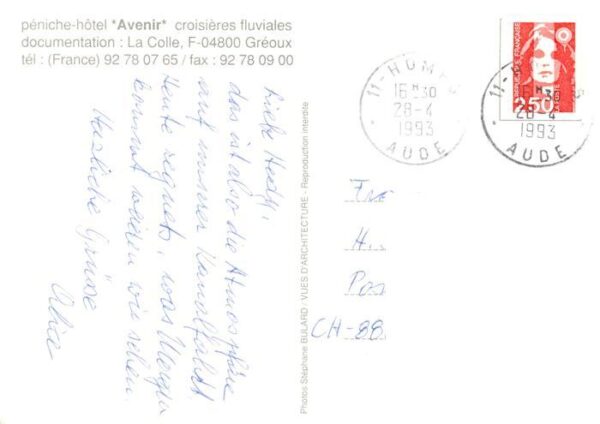 péniche-hôtel *Avenir* croisières fluviales
documentation : La Colle, F-04800 Gréoux
tél : (France) 92 78 07 65 / fax : 92 78 09 00
Liebe Hedy,
das ist also die Atmosphäre
auf unserer Kanalfahrt
Heute regnets, was Morgen
kommt werden wir sehen.
Herzliche Grüsse
Alice
Photos Stéphane BULARD / VUES D'ARCHITECTURE - Reproduction interdite
11-HOMPS
16H30
28-4
1993
AUDE
11-HOMPS
16H30
28-4
1993
AUDE
2,50
H..
Pos
CH-88